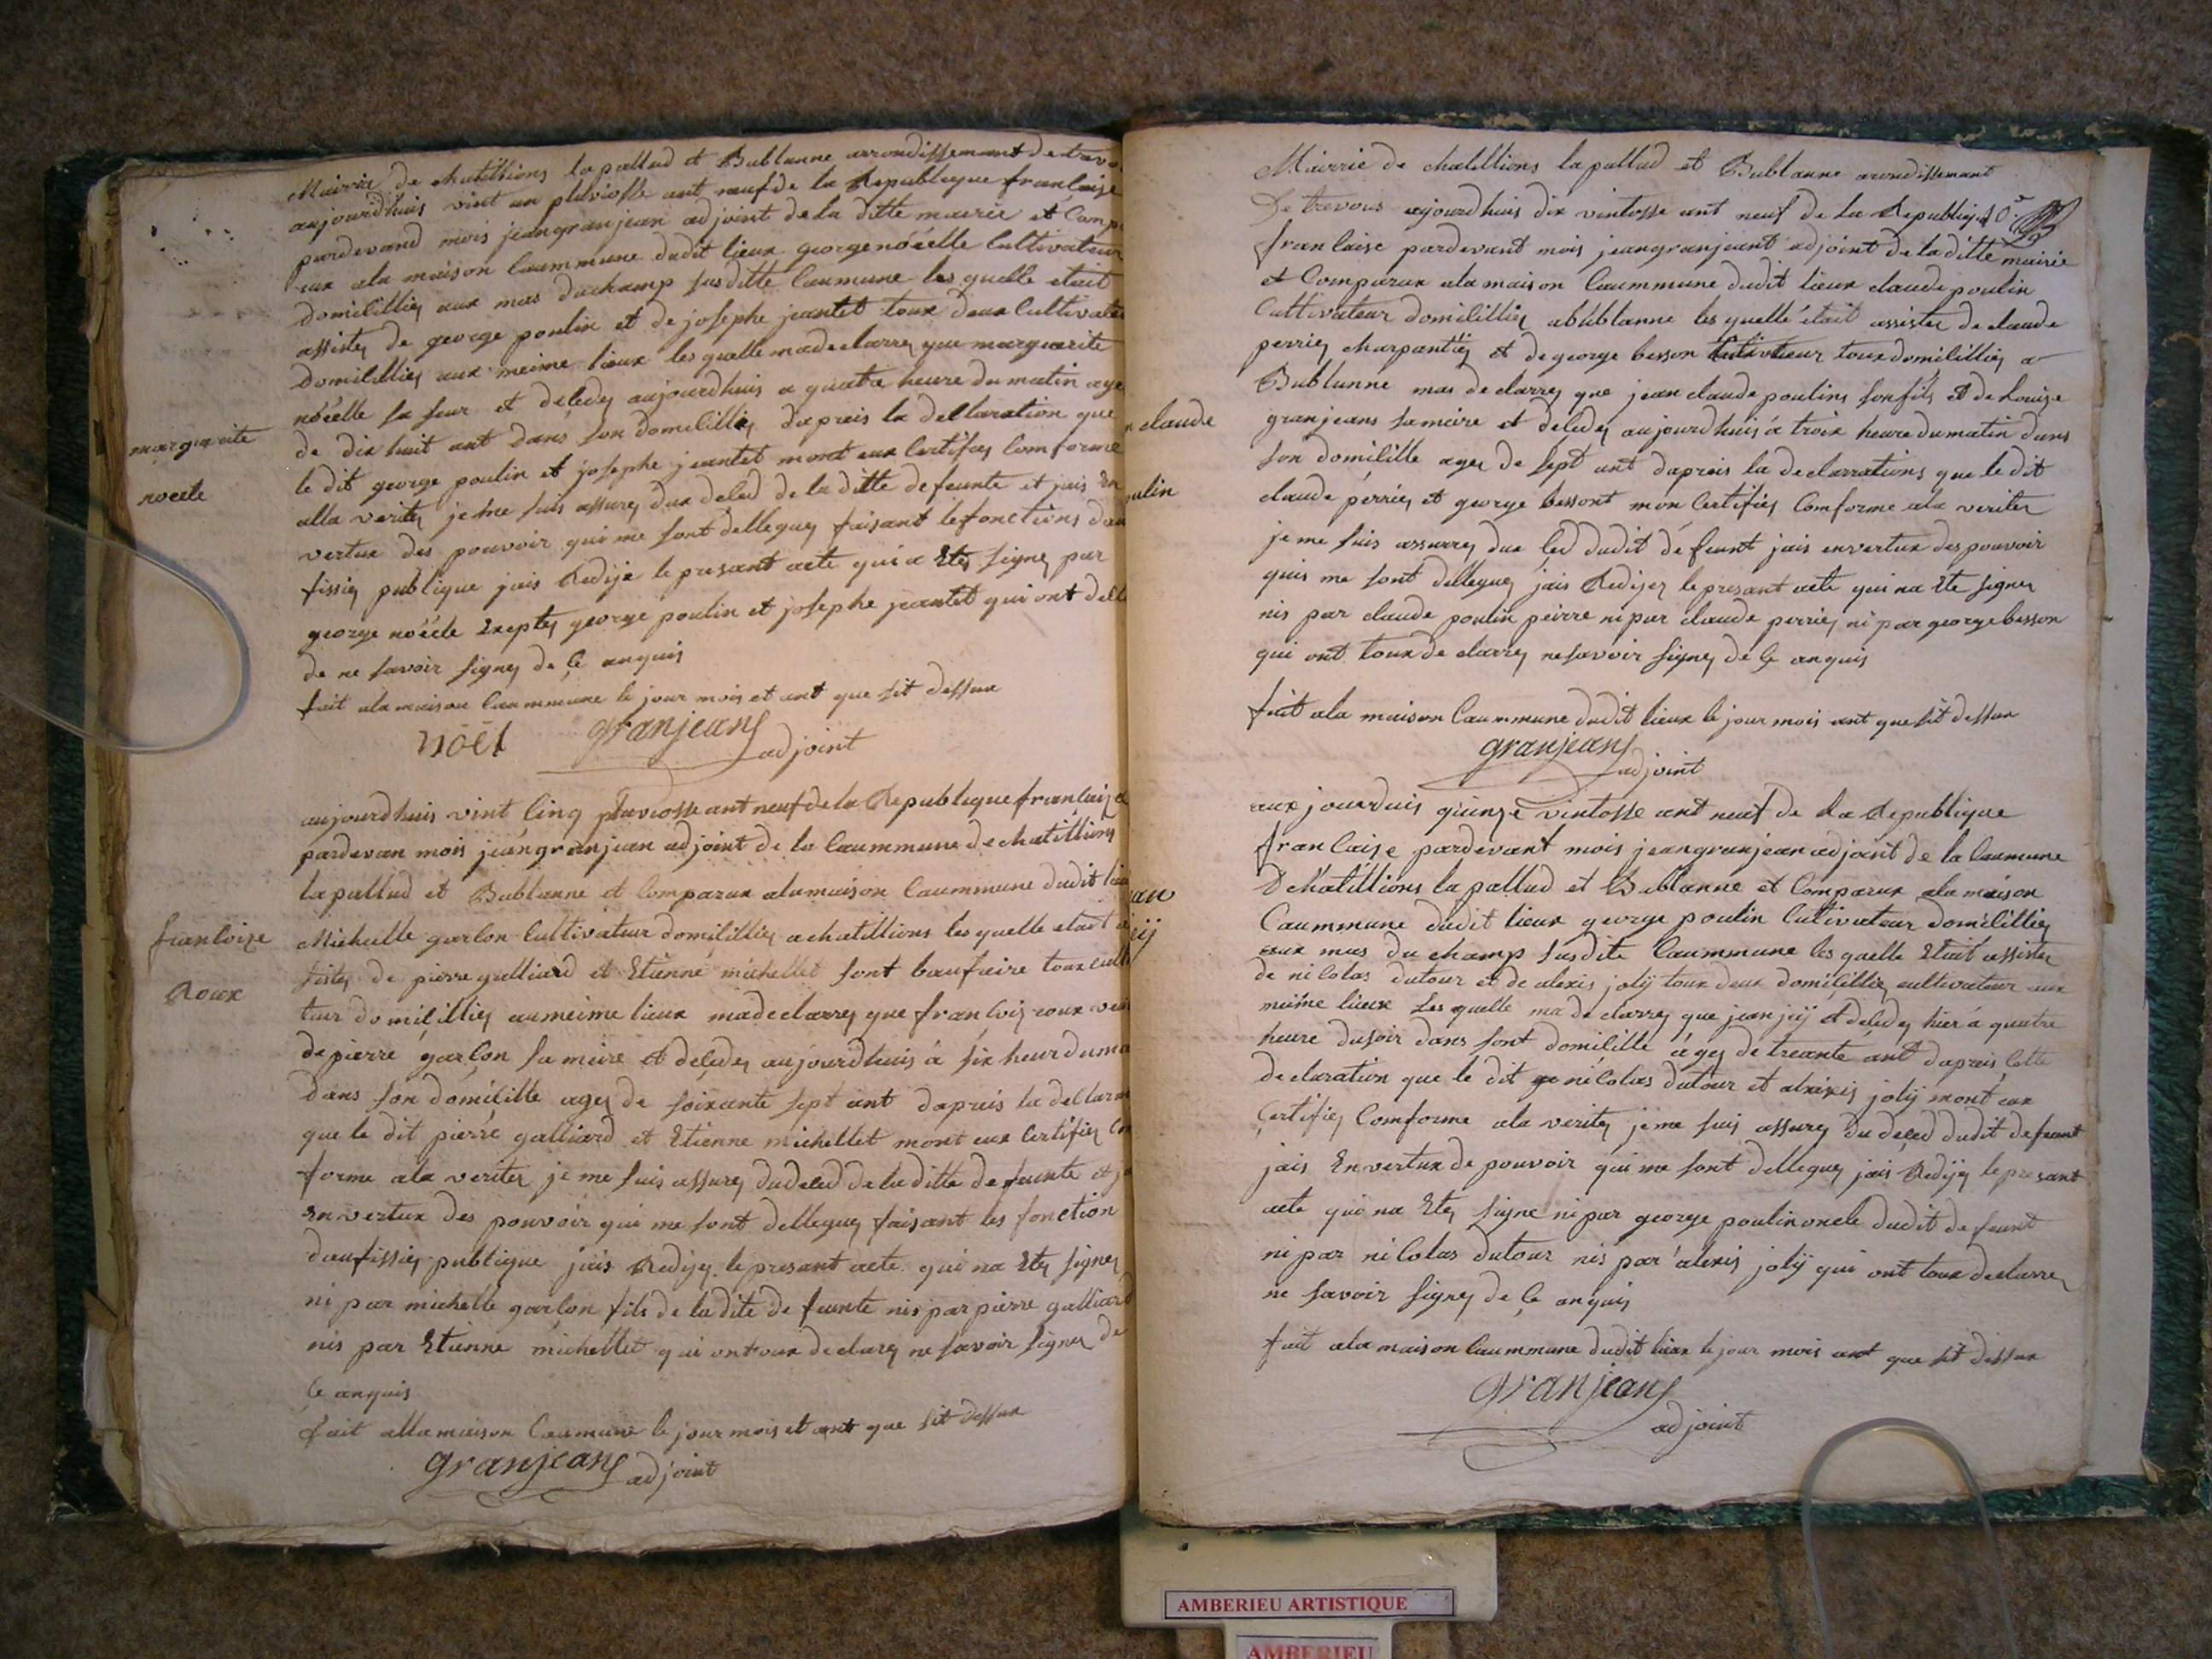 Mairie de chatillions lapallud et Bublanne arrondissemant de trevo
aujourdhuis vint un pluviosse ant neuf de la Republeque franlaise
pardevand mois jeangranjean adjoint de la ditte mairie et Comp
rux ala maison Caummune dudit lieux george nóéelle Cultivateur
domilillieɀ aux mas duchamp susditte Caumune les quelle etait
assisteɀ de george poulin et de josephe jeantet toux deux Cultivate
domilillieɀ aux meime lieux les quelle madeclarreɀ que marguerite
nóéelle sa seur et délédeɀ aujourdhuis a quatre heure du matin age
de dix huit ant dans son domilillieɀ dapreis la dellaration que
le dit george poulin et josephe jeantet mont eux Certifieɀ Comforme
marguerite
noeele
alla veriteɀ je me suis assureɀ dux deled de la ditte defeunte et jais En
vertux des pouvoir qui me sont delleguéɀ faisant le fonctions dau
fissieɀ publique jais Redije le presant acte qui a Etéɀ signeɀ par
george noéele Exepteɀ george poulin et josephe jeantet qui ont dell
de ne savoir signeɀ de çe anquis
fait ala maison Caummune le jour mois et ant que sit dessux
noël granjeans adjoint
aujourdhuis vint Cinq pluviosse ant neuf de la Republeque franlaise
pardevan mois jeangranjean adjoint de la Caummune de chatillions
lapallud et Bublanne et Comparux alamaison Caummune dudit lieu
franloise
Roux
Michelle garlon Cultivateur domilillieɀ a chatillions les quelle etait as
sisteɀ de pierre galliard et Etienne michellet sont baufreire toux culti
teur domilillieɀ aumeime lieux madeclarreɀ que françois roux veu
de pierre garçon sa meire et délédeɀ aujourdhuis á six heur du ma
dans son domilille ageɀ de soixante sept ant dapreis la dellara
que le dit pierre galliard et Etienne michellet mont eux Certifieɀ Con
forme ala veriteɀ je me suis assureɀ du deled de la ditte defeunte et ja
En vertux des pouvoir qui me sont delleguéɀ faisant les fonction
daufissieɀ publique jais Redijeɀ le presant acte qui na Etéɀ signeɀ
ni par michelle garlon fils de la dite defeunte nis par pierre galliard
nis par Etienne michellet qui ont oux declareɀ ne savoir signeɀ de
çe anquis
fait alla maison Caumune le jour mois et ant que sit dessux
granjeans adjoint
Mairrie de chatillions lapallud et Bublanne arondissemant
De trevous aujourdhuis dix vintosse ant neuf de la Republique
franlaise pardevant mois jeangranjeant adjoint de la ditte mairie
et Comparux ala maison Caummune dudit lieux claude poulin
Cultivateur domilillieɀ abúblanne les quelle était assisteɀ de claude
perrieɀ charpantieɀ et de george besson Cultivateur toux domilillieɀ a
Bublanne mas declarreɀ que jean claude poulins son fils et de Louise
granjeans sa meire et délédeɀ aujourdhuis á troix heure du matin dans
n claude
son domilille ageɀ de sept ant dapreis la declarrations que le dit
oulin
claude perrieɀ et george bessont mon Certifieɀ Comforme ala veriteɀ
je me suis assurreɀ due led dudit défeunt jais envertux des pouvoir
quis me sont delleguéɀ jais Redijeɀ le presant acte qui na Ete signeɀ
nis par claude poulin peirre ni par claude perrieɀ ni par george besson
qui ont toux declarreɀ ne savoir signeɀ de çe anquis
fait ala maison Caummune dudit lieux le jour mois ant que sit dessux
granjeans adjoint
aux jourduis quinze vintosse ant neuf de la Republique
franlaise pardevant mois jeangranjean adjoint de la Caumune
Dchatillions lapallud et Bublanne et Comparux ala maison
Caummune dudit lieux george poulin Cultivateur domilillieɀ
aux mas du champ susdite Caummune les quelle Etait assisteɀ
de nicolas dutour et de alexis jolÿ toux deux domilillieɀ cultivateur aux
meime lieux Les quelle ma declarreɀ que jean jÿ et délédeɀ hier á quatre
heure dusoir dans sont domilille ágeɀ de treante ant dapreis Cette
declaration que le dit nicolas dutour et alexis jolÿ mont eux
Certifieɀ Comforme ala veriteɀ je me suis assureɀ du deled dudit defeunt
jais Envertux de pouvoir qui me sont delleguéɀ jais Redijeɀ le presant
acte qui na Etéɀ signe ni par george poulin oncle dudit defeunt
ni par nicolas dutour nis par alexis jolÿ qui ont toux declarreɀ
ne savoir signeɀ de çe anquis
fait ala maison Caummune dudit lieux le jour mois ant que sit dessux
granjeans
adjoint
AMBERIEU ARTISTIQUE
AMBERIEU